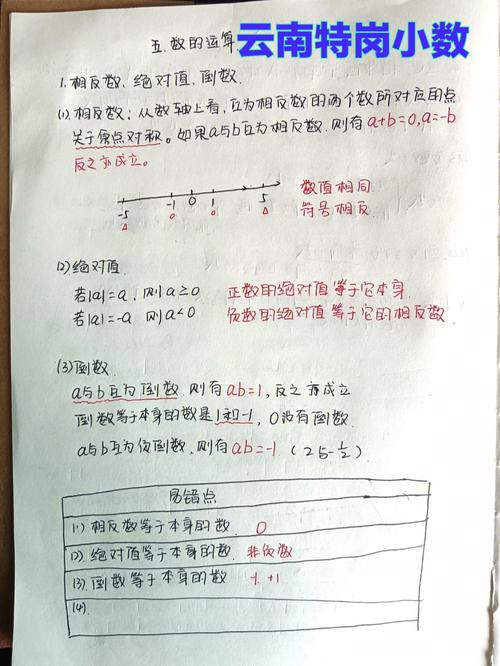 五.数的运算 云南特岗小数
1.相反数、绝对值、倒数.
(1)相反数:从数轴上看,互为相反数的两个数所对应的点
关于原点对称。如果a与b互为相反数.则有a+b=0,a=-b
反之亦成立。
-5 -1 0 1 5
数值相同
符号相反
(2)绝对值.
若|a|=a,则a≥0 正数的绝对值等于它本身.
若|a|=-a 则a<0 负数的绝对值等于它的相反数.
(3)倒数.
a与b互为倒数.则有ab=1,反之亦成立
倒数等于本身的数是1和-1,0没有倒数.
a与b互为负倒数,则有ab=-1 (2与-1/2)
易错点
(1)相反数等于本身的数. 0
(2)绝对值等于本身的数. 非负数
(3)倒数等于本身的数 -1. +1
(4)